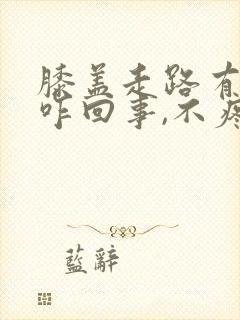 膝盖走路有
咋回事,不疼
藍辭